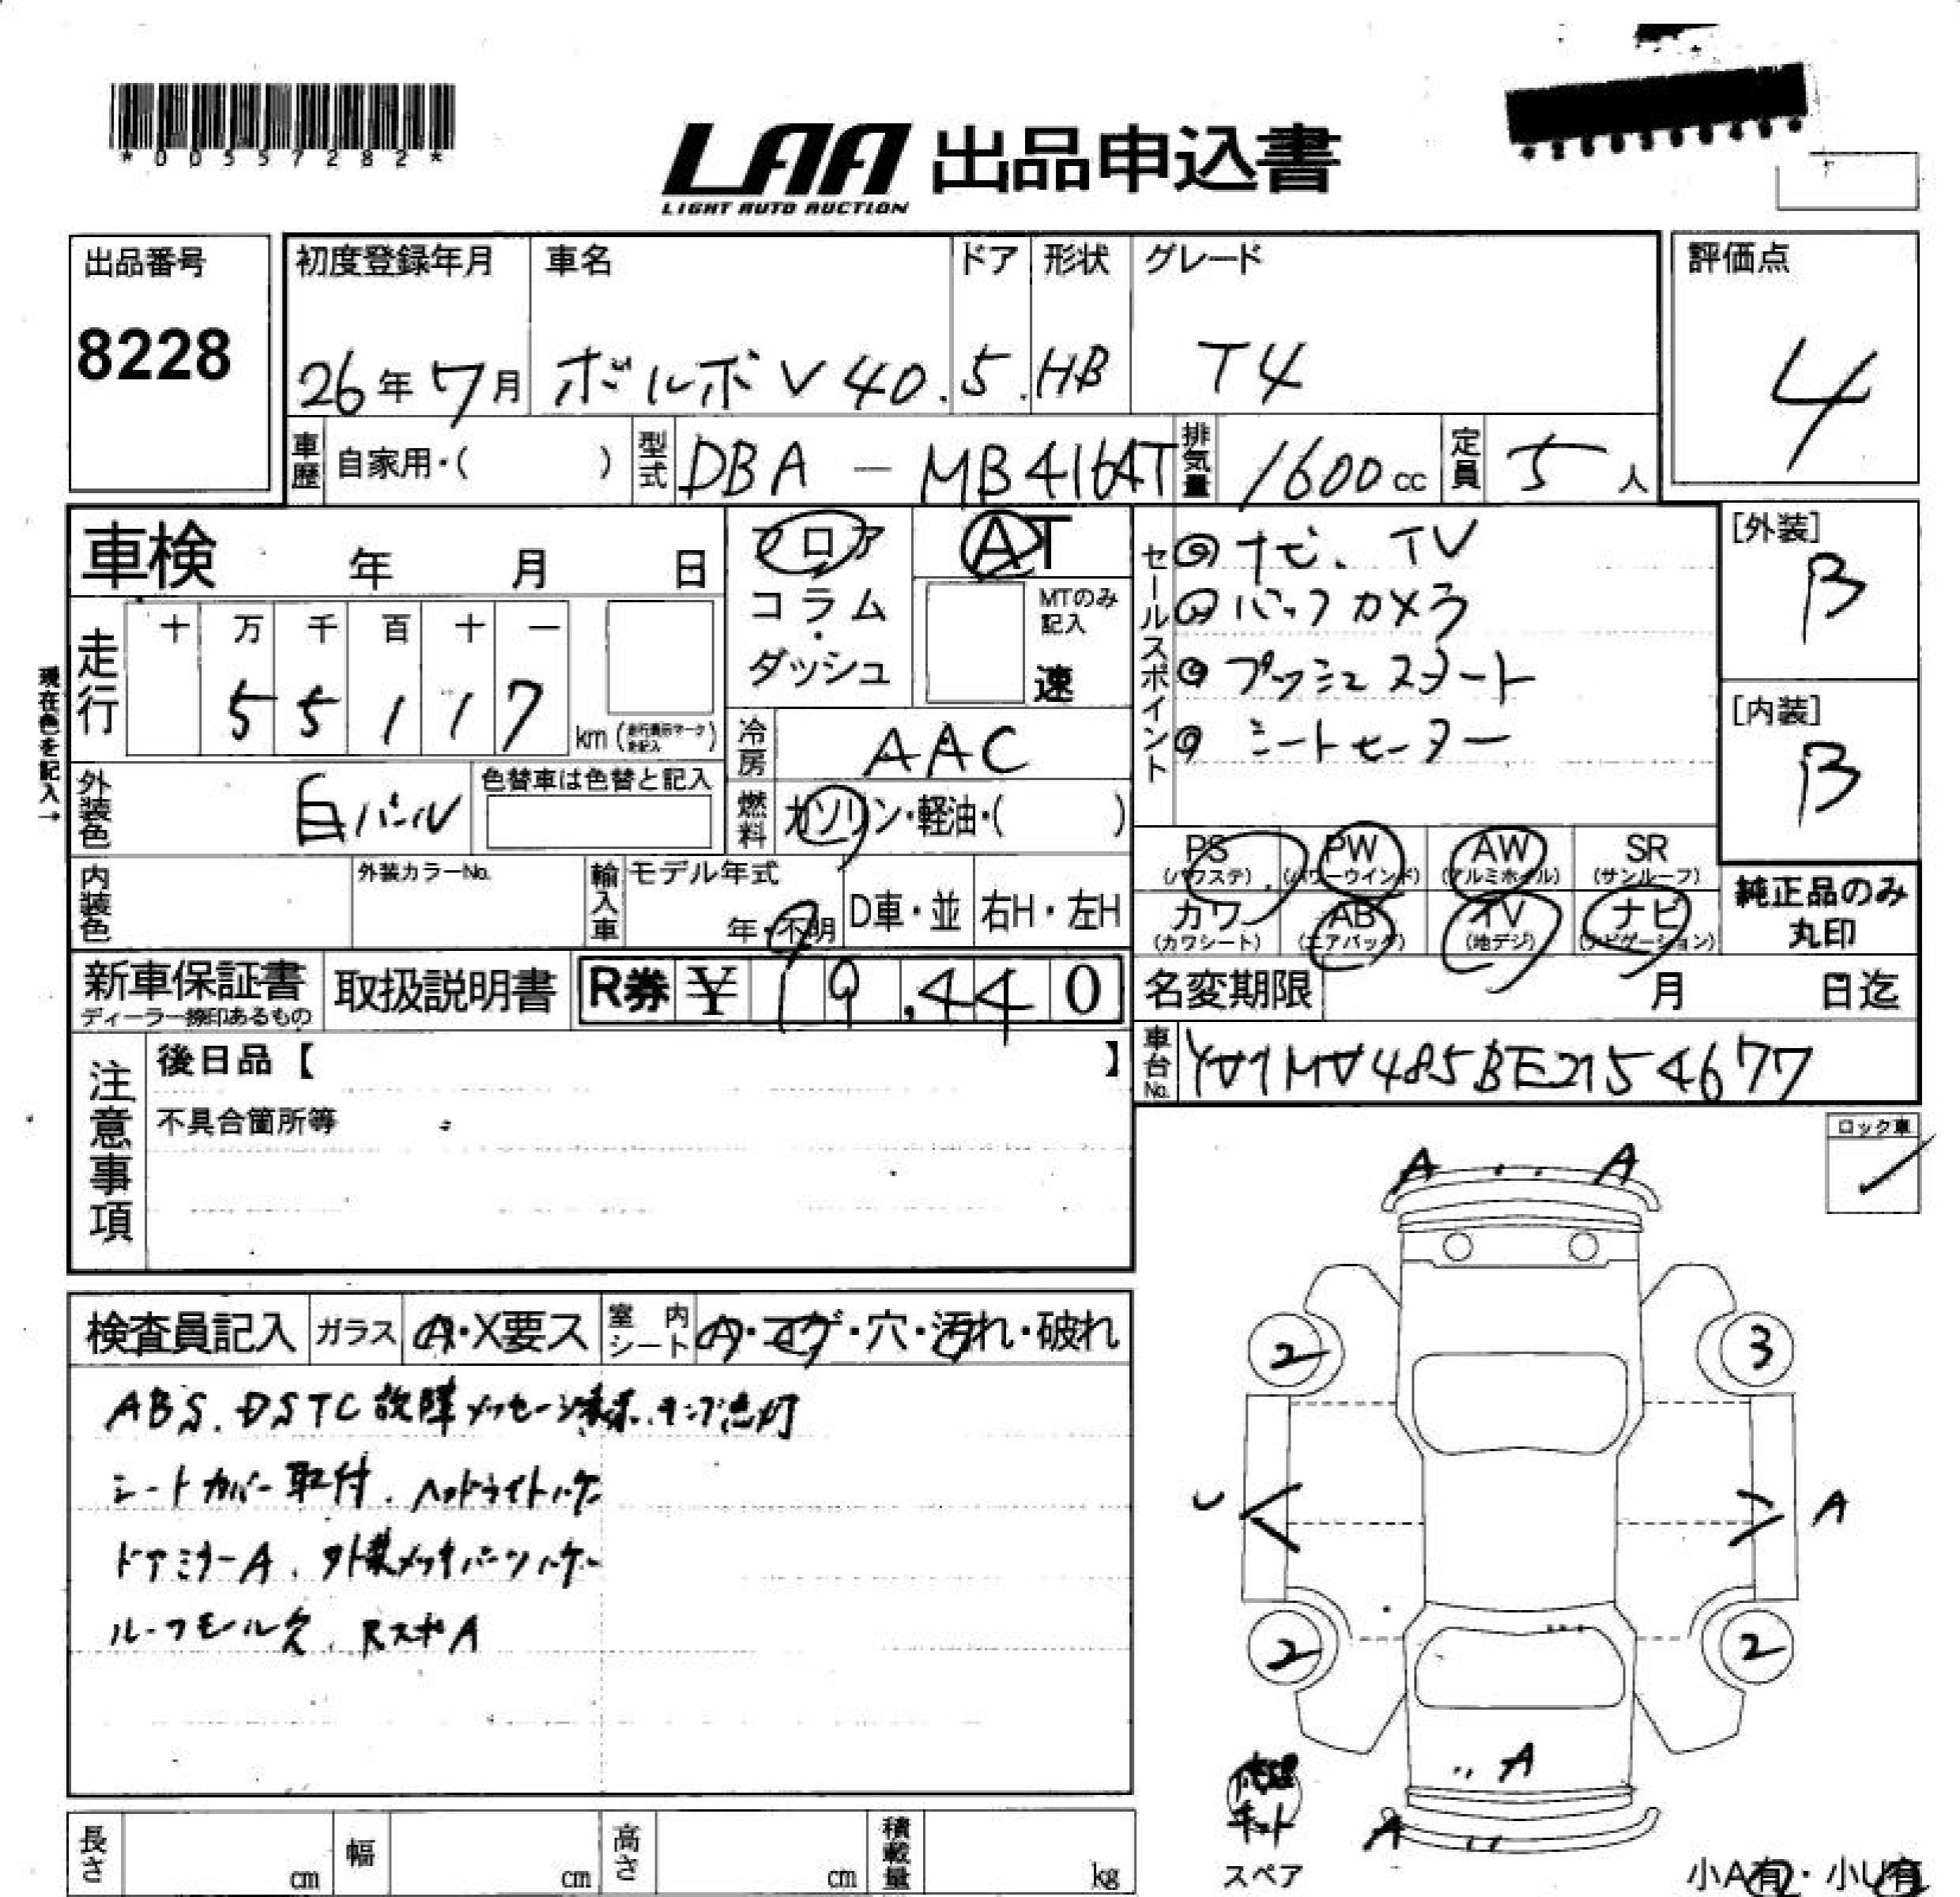 *00557282*
LAA 出品申込書
LIGHT AUTO AUCTION
出品番号
8228
初度登録年月 車名 ドア 形状 グレード
26年7月 ボルボV40. 5. HB T4
評価点
4
車歴 自家用・( ) 型式 DBA - MB4164T 排気量 1600cc 定員 5人
車検 年 月 日
フロア
コラム
・
ダッシュ
AT
MTのみ
記入
速
現在色を記入→
走行 十 万 千 百 十 一
5 5 1 1 7 km(走行表示マークを記入)
冷房 AAC
外装色 白パール 色替車は色替と記入
燃料 ガソリン・軽油・( )
内装色 外装カラーNo. 輸入車 モデル年式
年・不明 D車・並 右H・左H
新車保証書 取扱説明書 R券 ¥ 19,440
ディーラー捺印あるもの
セールスポイント
◎ナビ、TV
◎バックカメラ
◎プッシュスタート
◎シートヒーター
[外装]
B
[内装]
B
PS PW AW SR
(パワステ) (パワーウインド) (アルミホイル) (サンルーフ)
カワ AB TV ナビ
(カワシート) (エアバッグ) (地デジ) (ナビゲーション)
純正品のみ
丸印
名変期限 月 日迄
車台No. YV1MV485BE2154677
注意事項
後日品【 】
不具合箇所等
ロック車
検査員記入 ガラス A・X要ス 室内シート A・コゲ・穴・汚れ・破れ
ABS、DSTC故障メッセージ表示、ランプ点灯
シートカバー取付、ヘッドライトハゲ
ドアミラーA、外装メッキパーツハゲ
ルーフモール欠、RスポA
A A
2 3
A
2 2
A
A
キット
スペア
小A有・小U有
長さ cm 幅 cm 高さ cm 積載量 kg